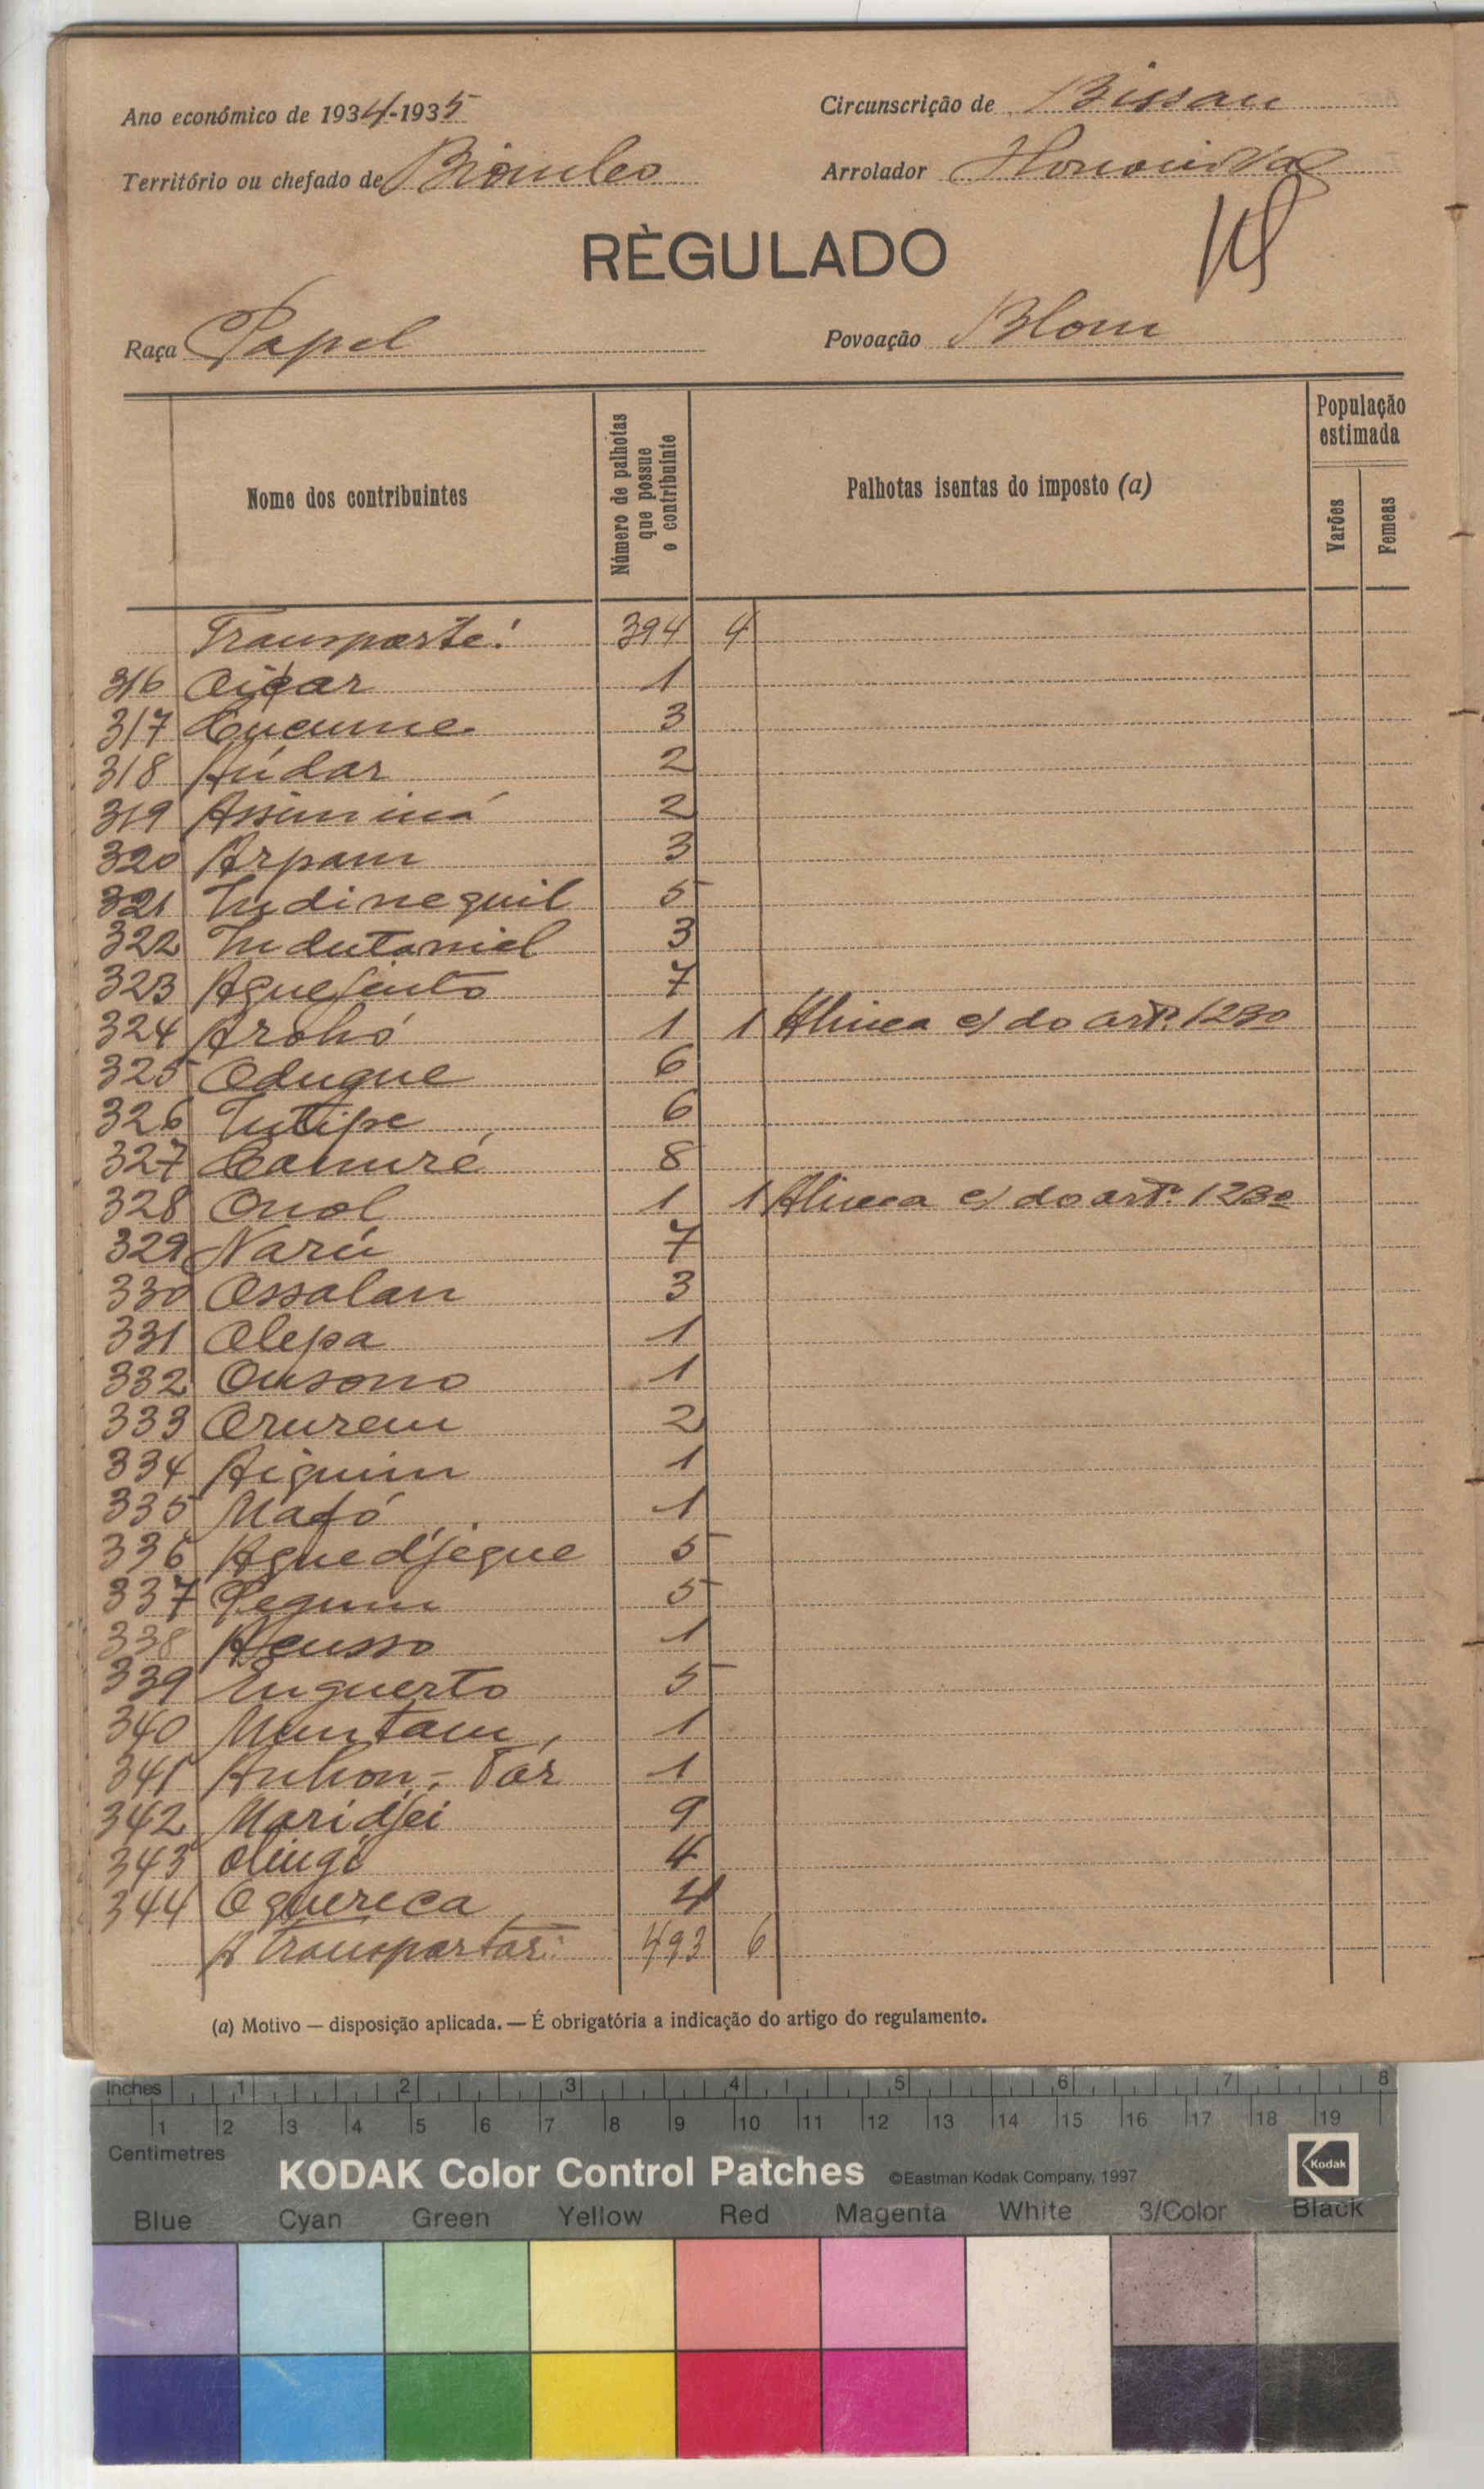 Ano económico de 1934-1935
Circunscrição de Bissau
Território ou chefado de Biombo
Arrolador
RÈGULADO
Raça Papel
Povoação Blom
Nome dos contribuintes
Número de palhotas que possue o contribuinte
Palhotas isentas do imposto (a)
População estimada
Varões
Femeas
Transporte: 394 4
316 1
317 Cucume 3
318 Aúdar 2
319 Assiminá 2
320 Arpam 3
321 Indinequil 5
322 Indutoniel 3
323 Aguesinto 7
324 Arohó 1 1 Alinea c) do artº. 123º
325 Odugue 6
326 Intipe 6
327 Camuré 8
328 Onol 1 1 Alinea c) do artº. 123º
329 Narú 7
330 Ossalan 3
331 Olepa 1
332 Ousono 1
333 Orurem 2
334 Aiguim 1
335 Mafó 1
336 Aguedjegue 5
337 Pegum 5
338 1
339 Inguerto 5
340 Muntam 1
341 Anhon-Tór 1
342 Maridjei 9
343 Olingó 4
344 Oguereca 4
A transportar: 493 6
(a) Motivo — disposição aplicada. — É obrigatória a indicação do artigo do regulamento.
Inches 1 2 3 4 5 6 7 8
1 2 3 4 5 6 7 8 9 10 11 12 13 14 15 16 17 18 19
Centimetres
KODAK Color Control Patches ©Eastman Kodak Company, 1997 Kodak
Blue Cyan Green Yellow Red Magenta White 3/Color Black